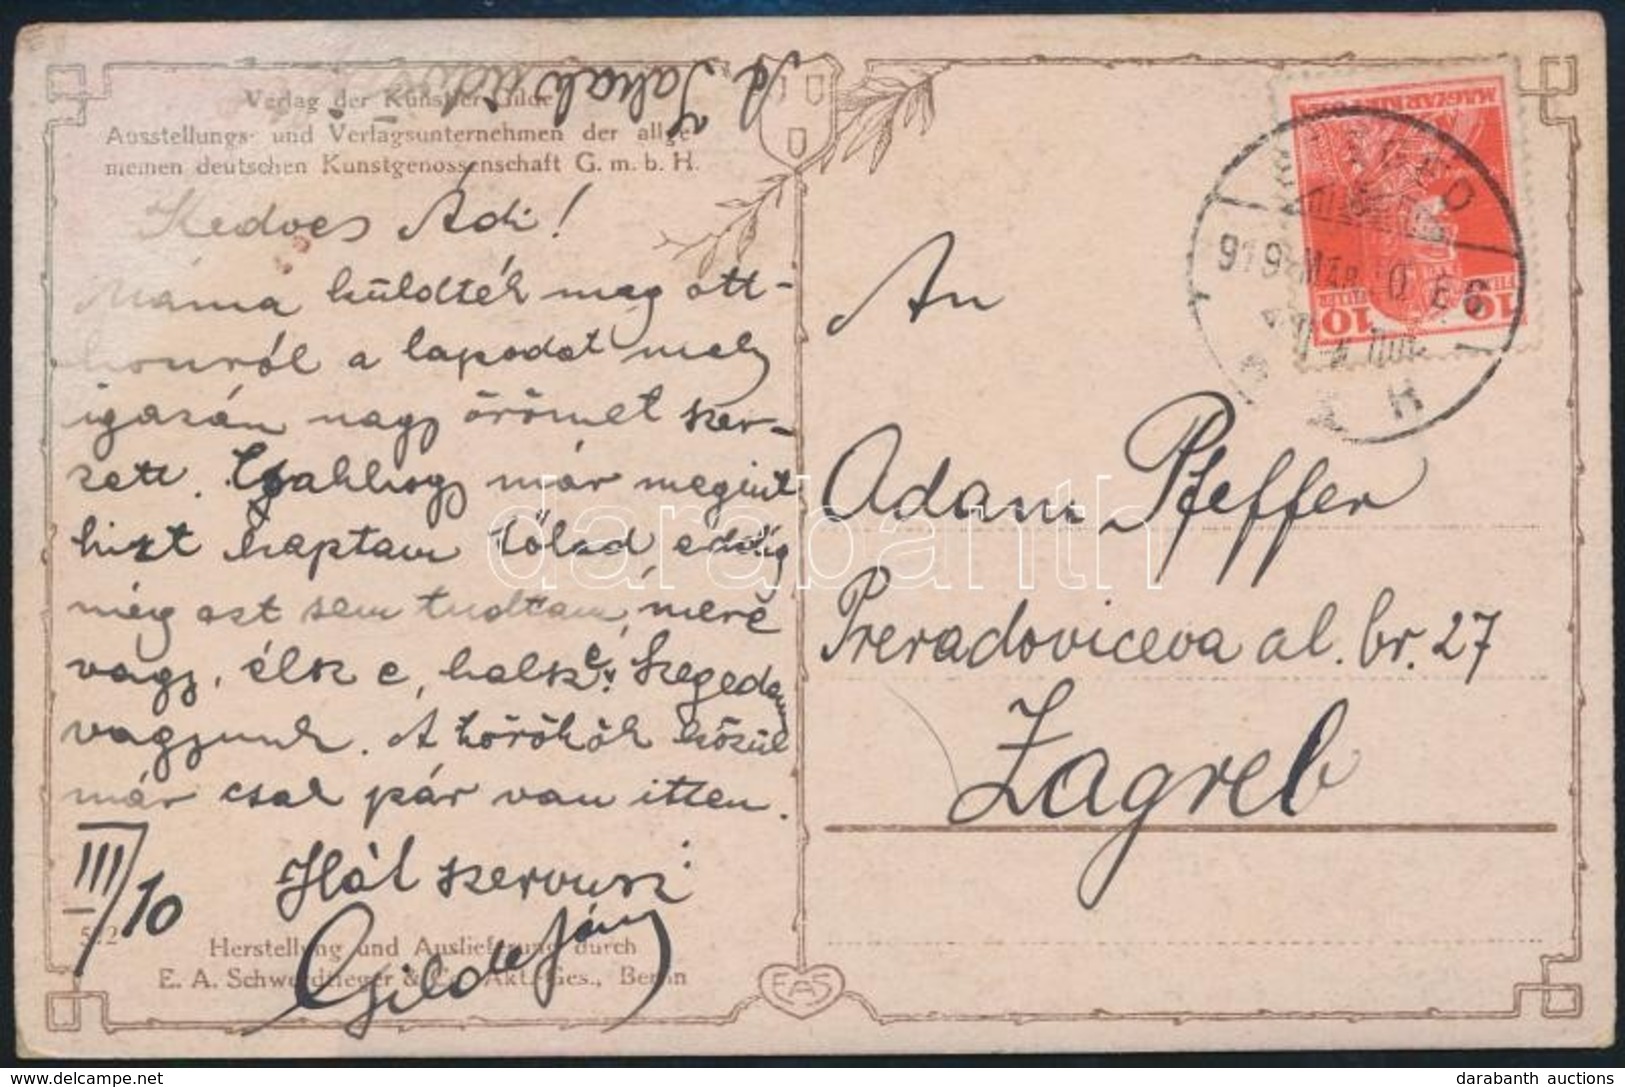 Verlag der Künstler-Gilde
Ausstellungs- und Verlagsunternehmen der allge-
meinen deutschen Kunstgenossenschaft G. m. b. H.
Kedves Adi!
Máma küldték meg ott-
honról a lapodat mely
igazán nagy örömet szer-
zett. Csakhogy már megint
hirt kaptam tőled, eddig
még azt sem tudtam, merre
vagy, élsz e, halsz e. Szegeden
vagyunk. A törökök közül
már csak pár van itten.
III/10
Hát szervusz:
Gilde János
Herstellung und Auslieferung durch
E. A. Schwerdtfeger & Co. Akt.-Ges., Berlin
EAS
MAGYAR KIR. POSTA
10 FILLÉR
SZEGED
919 MÁR 10 E 6
An
Adam Pfeffer
Preradoviceva al. br. 27
Zagreb
darabanth
darabanth auctions